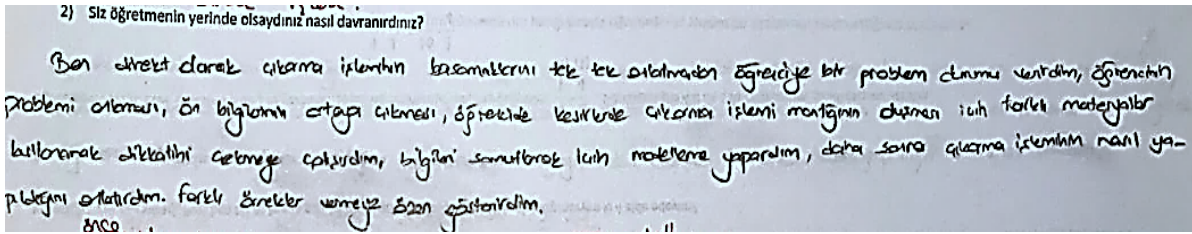 2) Siz öğretmenin yerinde olsaydınız nasıl davranırdınız?
Ben direkt olarak çıkarma işleminin basamaklarını tek tek anlatmadan öğrenciye bir problem durumu verirdim, öğrencinin
problemi anlaması, ön bilgilerinin ortaya çıkması, öğrencide kesirlerde çıkarma işlemi mantığının oluşması için farklı materyaller
kullanarak dikkatini çekmeye çalışırdım, bilgileri somutlamak için modelleme yapardım, daha sonra çıkarma işleminin nasıl ya-
pıldığını anlatırdım. farklı örnekler vermeye özen gösterirdim.
önce